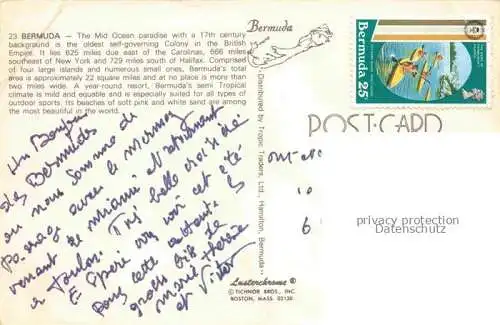 23 BERMUDA — The Mid Ocean paradise with a 17th century
background is the oldest self-governing Colony in the British
Empire. It lies 625 miles due east of the Carolinas, 666 miles
southeast of New York and 729 miles south of Halifax. Comprised
of four large islands and numerous small ones, Bermuda's total
area is approximately 22 square miles and at no place is more than
two miles wide. A year-round resort, Bermuda's semi Tropical
climate is mild and equable and is especially suited for all types of
outdoor sports, its beaches of soft pink and white sand are among
the most beautiful in the world.
Un Bonjour
des Bermudes
ou nous somme de
Passage avec le mermoz
venant de miami et retournant
a Toulon. Très belle croisière
Espère vous voir cet été
pour cette
gros bis de
marie-thérèse
et Victor
Bermuda
Distributed by Tropic Traders, Ltd., Hamilton, Bermuda
Lusterchrome®
© TICHNOR BROS., INC.
BOSTON, MASS. 02130
Bermuda 25c
POST·CARD
10
6
privacy protection
Datenschutz